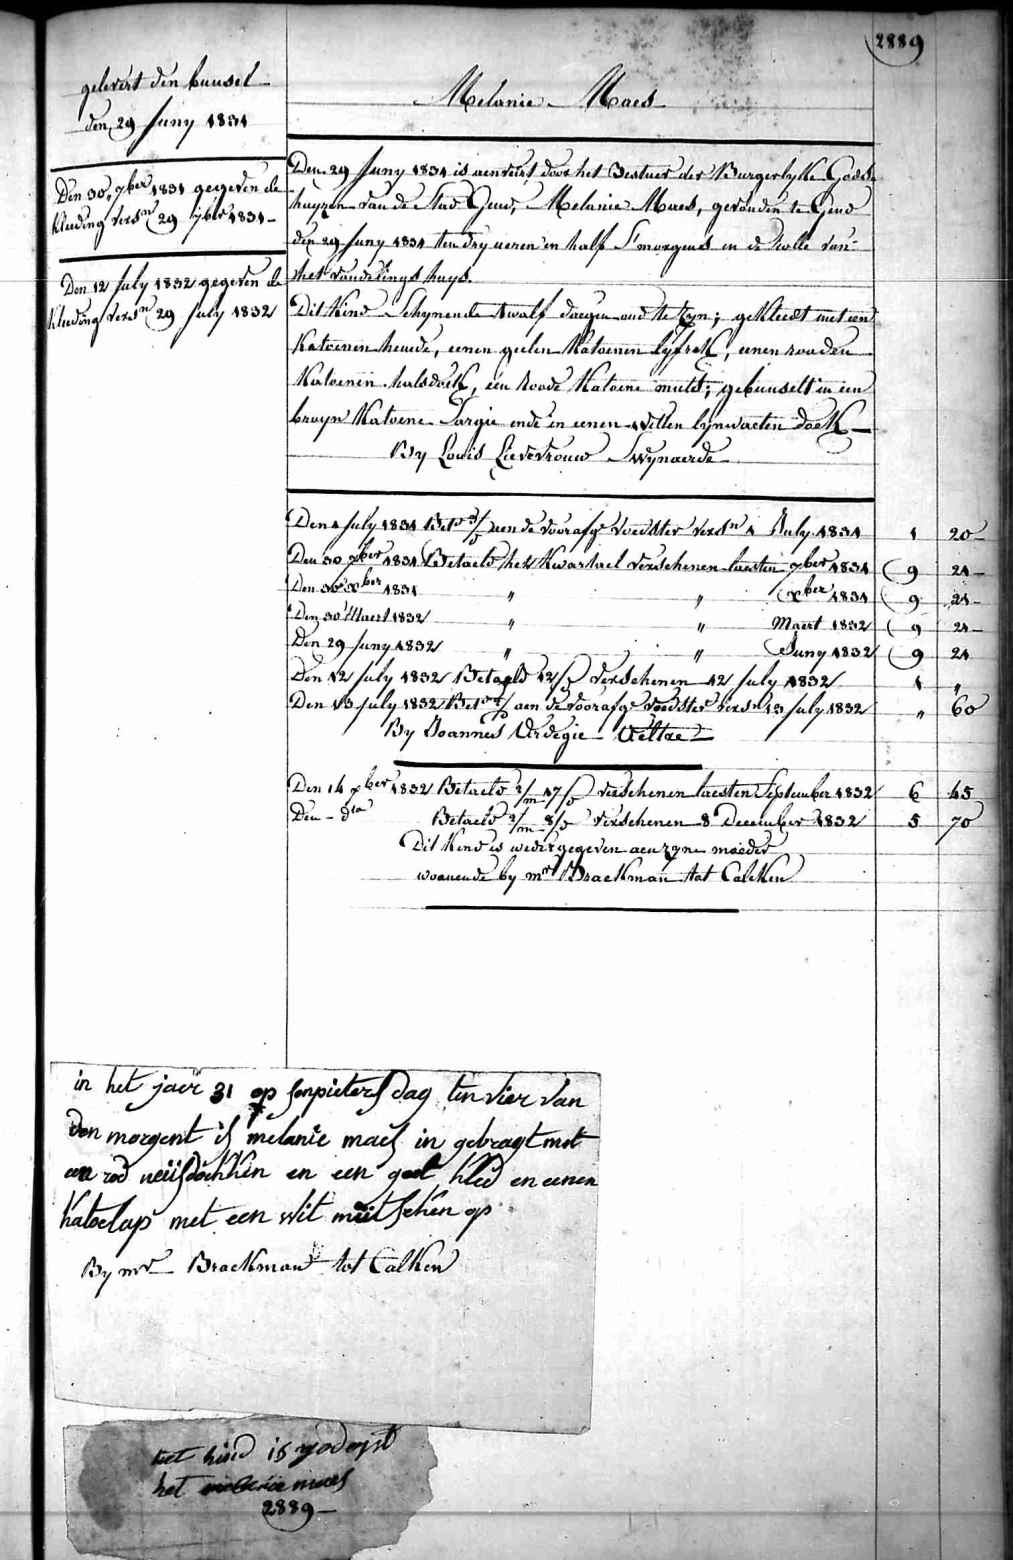 2889
gelevert den bunsel
den 29 Juny 1831
Den 30 7ber 1831 gegeven de
kleeding versn 29 7ber 1831
Den 12 July 1832 gegeven de
kleeding versn 29 July 1832
Melanie Maes
Den 29 Juny 1831 is aenveert door het Bestuer der Burgerlyke Gods-
huyzen van de Stad Gend, Melanie Maes, gevonden te Gend
den 29 Juny 1831 ten dry ueren en half S'morgens in de rolle van
het vondelings huys.
Dit Kind Schynende twalf daegen oud te zyn; gekleedt met een
Katoenen hemde, eenen geelen Katoenen lyfrok, eenen rooden
Katoenen halsdoek, een Roode Katoene muts; gebunselt in een
bruyn Katoene Sargie ende in eenen witten lynwaeten doek
By Louis Lievevrouw Swynaerde
Den 4 July 1831 Bet. aen de voorafge voedster versn 4 July 1831 1 20
Den 30 7ber 1831 Betaeld het Kwartael verschenen laesten 7ber 1831 9 21
Den 30 Xber 1831 " " Xber 1831 9 21
Den 30 Maert 1832 " " Maert 1832 9 21
Den 29 Juny 1832 " " Juny 1832 9 21
Den 12 July 1832 Betaeld 12/ verschenen 12 July 1832 1 "
Den 13 July 1832 Bet. aen de voorafge voedster versn 13 July 1832 " 60
By Joannes Verdegie Veltse
Den 14 Xber 1832 Betaeld 2/m 17/ verschenen laesten September 1832 6 45
Den dto Betaeld 2/m 8/ verschenen 8 December 1832 5 70
Dit Kind is weder gegeven aen zyne moeder
woonende by mr Braekman tot Calcken
in het jaer 31 op senpieters dag ten vier van
den morgent is melanie maes in gebragt met
een rod neusdockken en een geel kleed en eenen
katoelap met een wit mutsken op
By mr Braekman tot Calken
het kind is gedopt
het melanie maes
2889